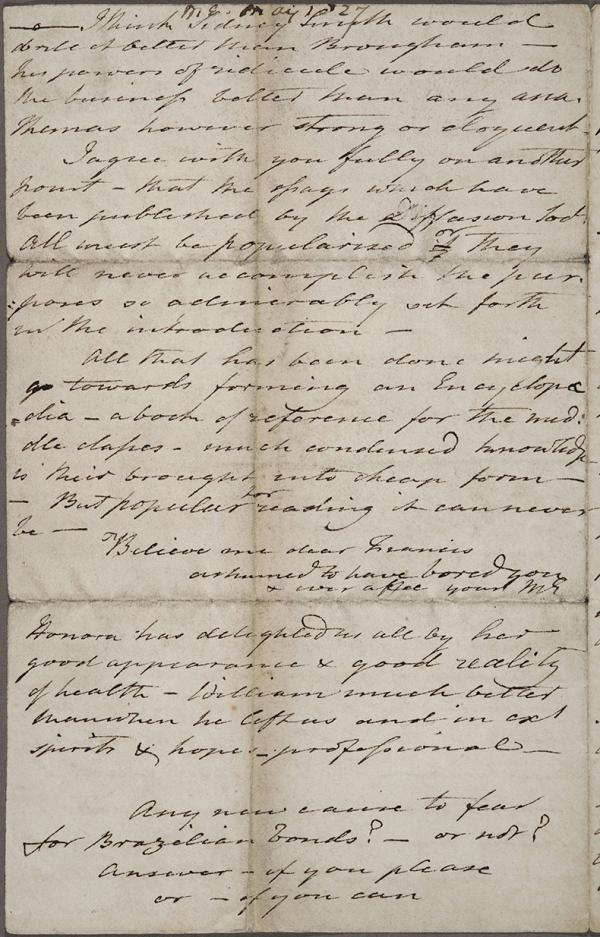 M.E. May 1827
— I think Sidney Smith would
do it better than Brougham —
his powers of ridicule would do
the business better than any ana-
themas however strong or eloquent.
I agree with you fully on another
point — that the essays which have
been published by the Diffusion Socy.
All must be popularised or they
will never accomplish the pur-
:poses so admirably set forth
in the introduction —
All that has been done might
go towards forming an Encyclopæ
:dia — a book of reference for the mid:
dle classes — much condensed knowledge
is their brought into cheap form —
— But popular for reading it can never
be —
Believe me dear Francis
ashamed to have bored you
& ever affec yours ME
Honora has delighted us all by her
good appearance & good reality
of health — William much better
than when he left us and in ext
spirits & hopes — professional —
Any new cause to fear
for Brazilian bonds? — or not?
Answer — if you please
or — if you can